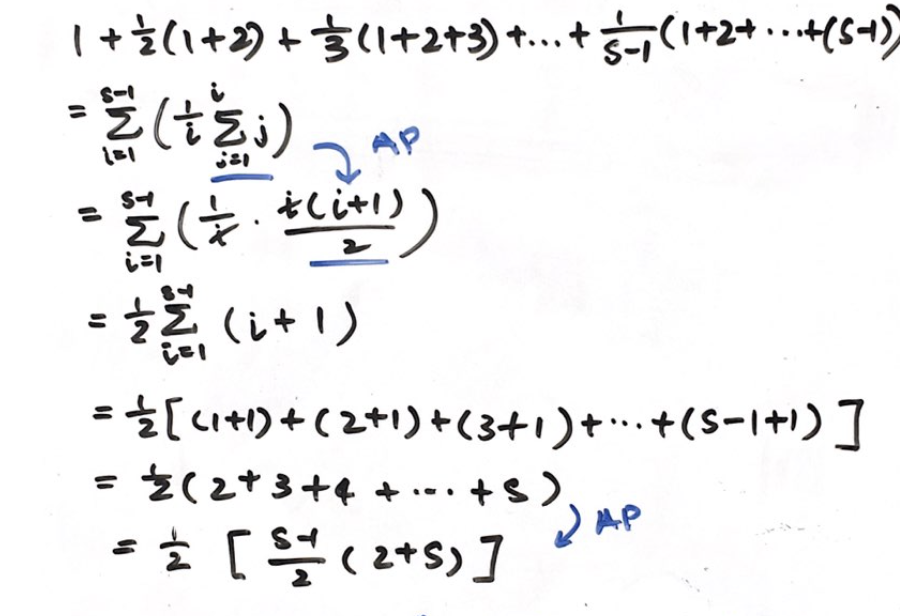 1 + 1/2(1+2) + 1/3(1+2+3)+...+ 1/(S-1)(1+2+...+(S-1))
= Σ_{i=1}^{S-1} (1/i Σ_{j=1}^{i} j) AP
= Σ_{i=1}^{S-1} (1/i · i(i+1)/2)
= 1/2 Σ_{i=1}^{S-1} (i+1)
= 1/2[(1+1)+(2+1)+(3+1)+...+(S-1+1)]
= 1/2(2+3+4+...+S)
= 1/2 [(S-1)/2 (2+S)] AP